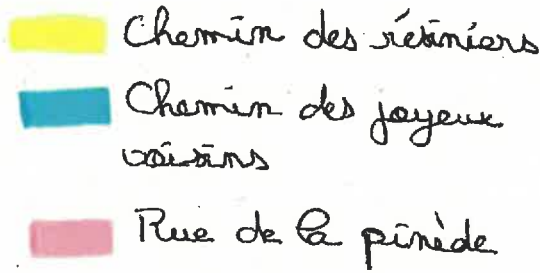 Chemin des résiniers
Chemin des joyeux
voisins
Rue de la pinède